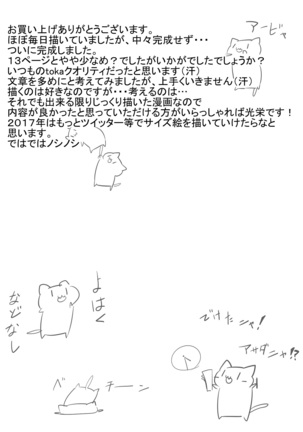 お買い上げありがとうございます。
ほぼ毎日描いていましたが、中々完成せず・・・
ついに完成しました。
13ページとやや少なめ？でしたがいかがでしたでしょうか？
いつものtokaクオリティだったと思います(汗)
文章を多めにと考えてみましたが、上手くいきません(汗)
描くのは好きなのですが・・・考えるのは…
それでも出来る限りじっくり描いた漫画なので
内容が良かったと思っていただける方がいらっしゃれば光栄です！
2017年はもっとツイッター等でサイズ絵を描いていけたらなと
思います。
ではではノシノシ
よはく
などなし
できたニャ!
アサダニャ!?
ベ
チーン